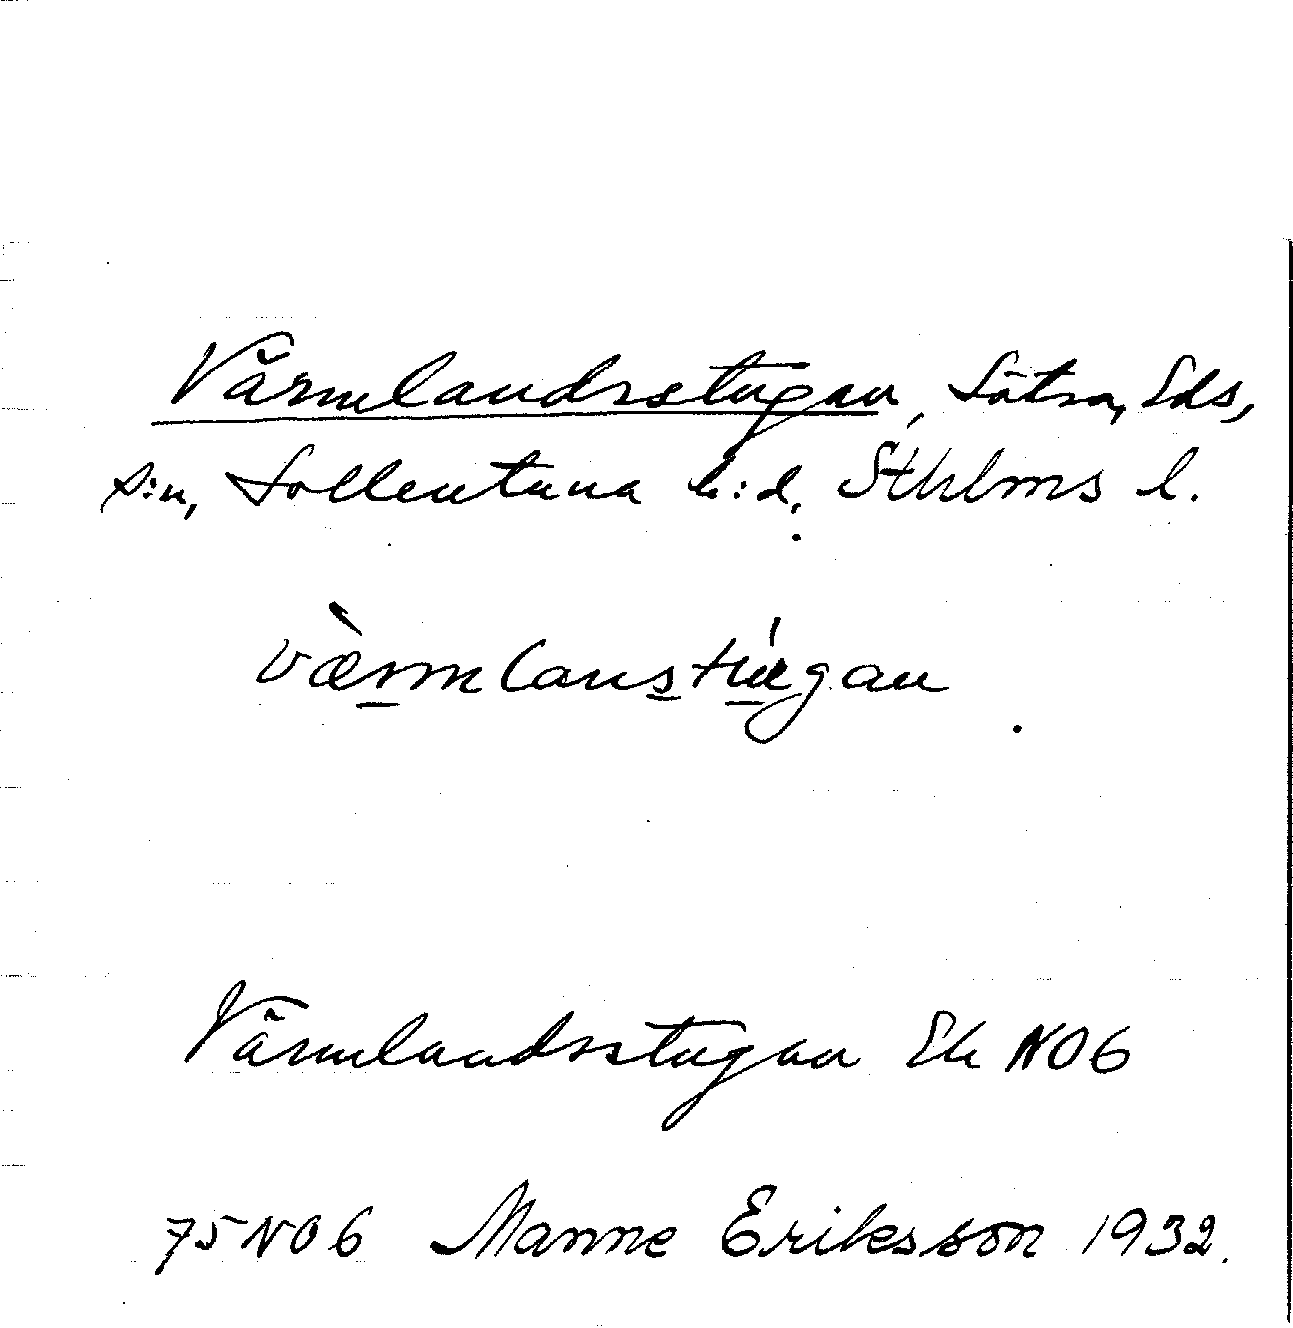 Värmlandsstugan, Sätra, Eds,
s:n, Sollentuna h:d, Sthlms l.
væ̀rmlanstúgan
Värmlandsstugan Ek NO6
75NO6 Manne Eriksson 1932.